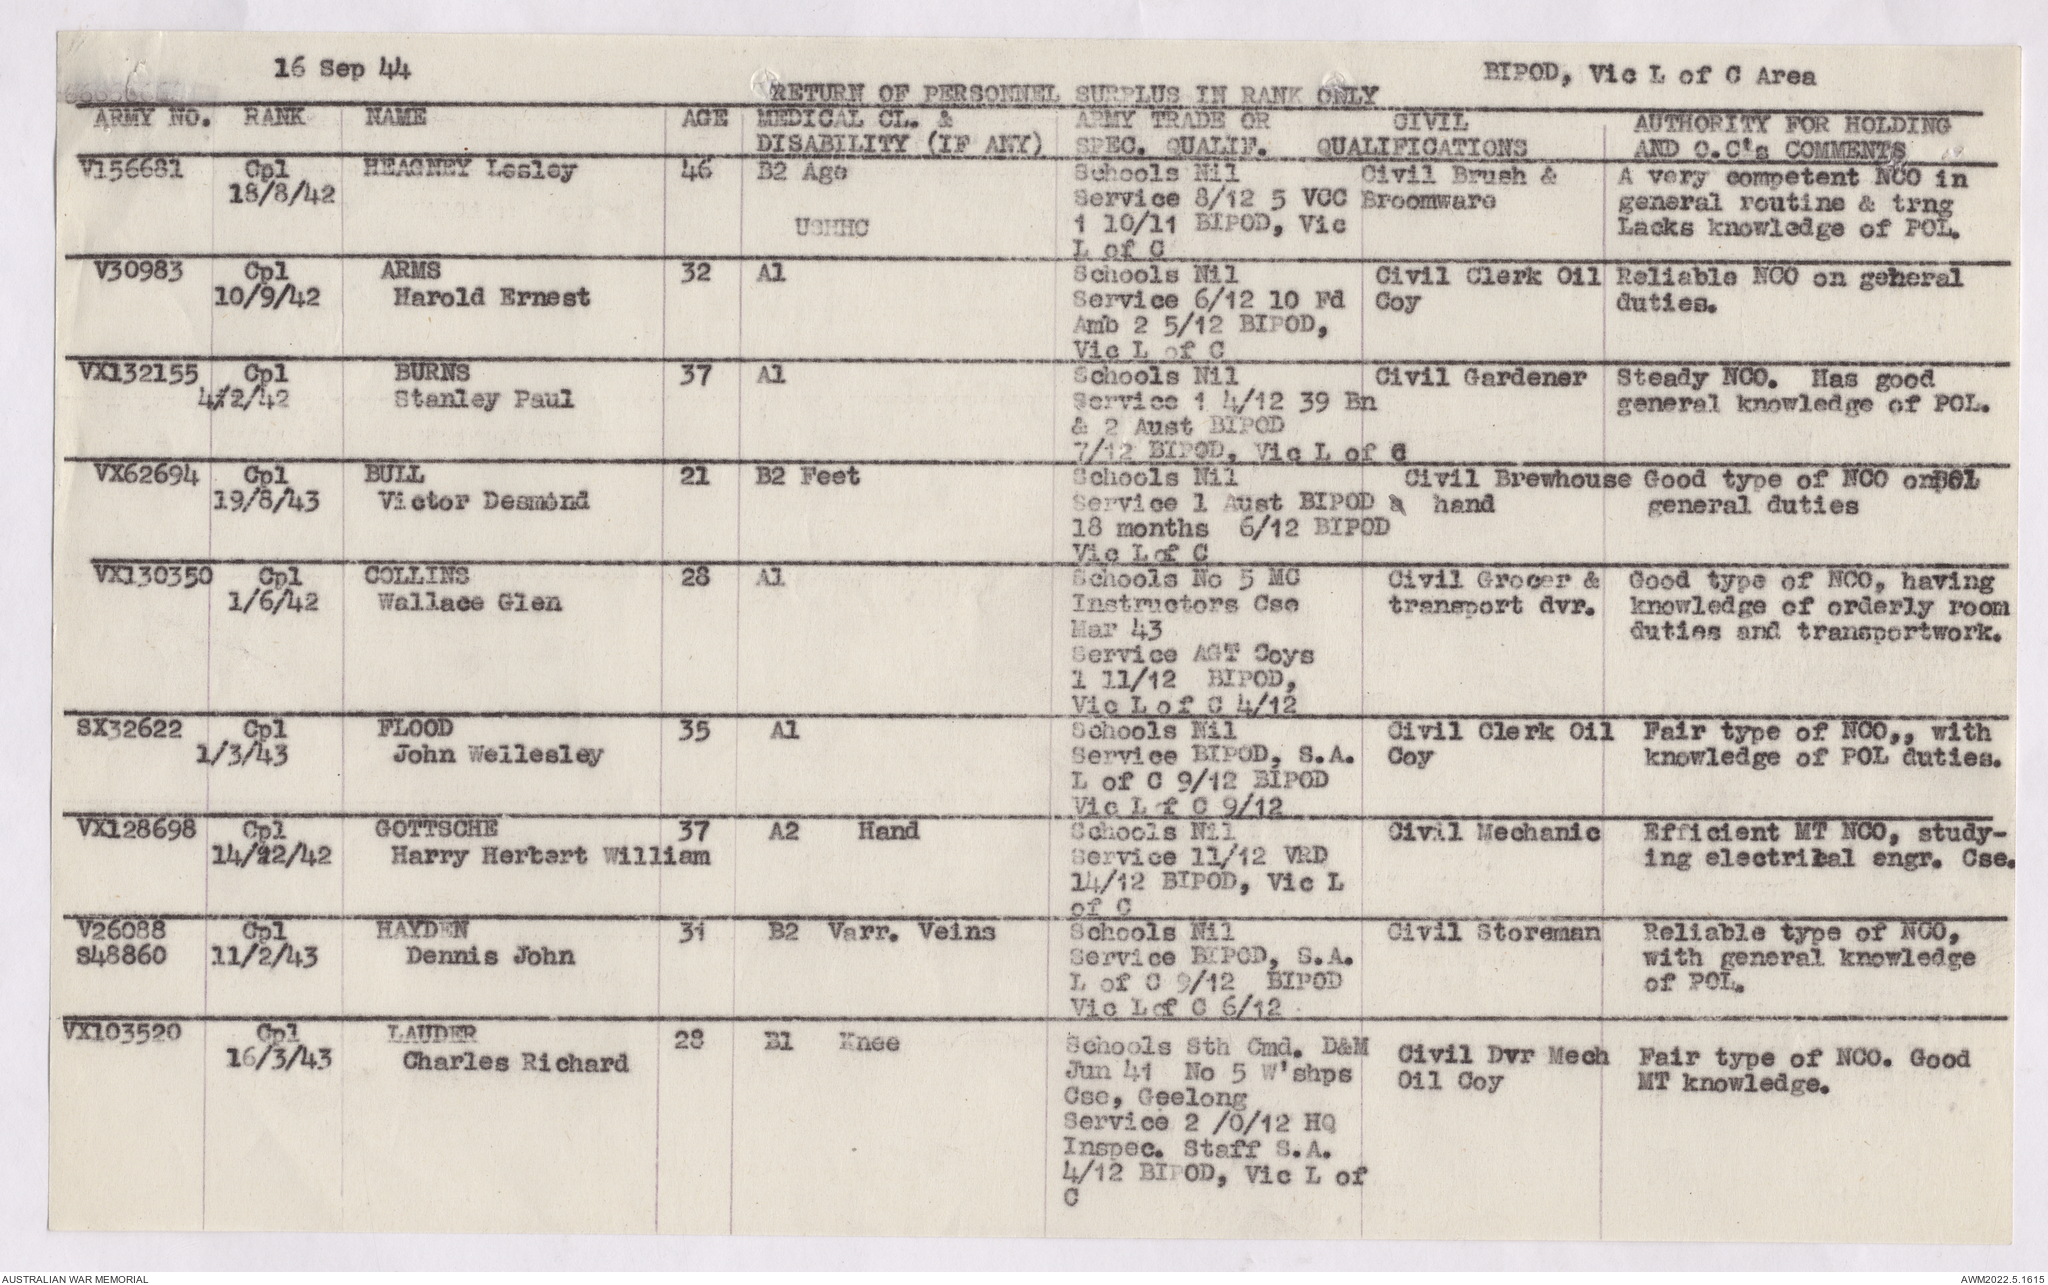 16 Sep 44
BIPOD, Vic L of C Area
RETURN OF PERSONNEL SURPLUS IN RANK ONLY
ARMY NO. RANK NAME AGE MEDICAL CL. & ARMY TRADE OR CIVIL AUTHORITY FOR HOLDING
DISABILITY (IF ANY) SPEC. QUALIF. QUALIFICATIONS AND O.C's COMMENTS
V156681 Cpl HEAGNEY Lesley 46 B2 Age Schools Nil Civil Brush & A very competent NCO in
18/8/42 Service 8/12 5 VCC Broomware general routine & trng
1 10/11 BIPOD, Vic Lacks knowledge of POL.
L of C
V30983 Cpl ARMS 32 A1 Schools Nil Civil Clerk Oil Reliable NCO on general
10/9/42 Harold Ernest Service 6/12 10 Fd Coy duties.
Amb 2 5/12 BIPOD,
Vic L of C
VX132155 Cpl BURNS 37 A1 Schools Nil Civil Gardener Steady NCO. Has good
4/2/42 Stanley Paul Service 1 4/12 39 Bn general knowledge of POL.
& 2 Aust BIPOD
7/12 BIPOD, Vic L of C
VX62694 Cpl BULL 21 B2 Feet Schools Nil Civil Brewhouse Good type of NCO on
19/8/43 Victor Desmond Service 1 Aust BIPOD hand general duties
18 months 6/12 BIPOD
Vic L of C
VX130350 Cpl COLLINS 28 A1 Schools No 5 MC Civil Grocer & Good type of NCO, having
1/6/42 Wallace Glen Instructors Cse transport dvr. knowledge of orderly room
Mar 43 duties and transportwork.
Service AGT Coys
1 11/12 BIPOD,
Vic L of C 4/12
SX32622 Cpl FLOOD 35 A1 Schools Nil Civil Clerk Oil Fair type of NCO,, with
1/3/43 John Wellesley Service BIPOD, S.A. Coy knowledge of POL duties.
L of C 9/12 BIPOD
Vic L of C 9/12
VX128698 Cpl GOTTSCHE 37 A2 Hand Schools Nil Civil Mechanic Efficient MT NCO, study-
14/12/42 Harry Herbert William Service 11/12 VRD ing electrical engr. Cse.
14/12 BIPOD, Vic L
of C
V26088 Cpl HAYDEN 31 B2 Varr. Veins Schools Nil Civil Storeman Reliable type of NCO,
S48860 11/2/43 Dennis John Service BIPOD, S.A. with general knowledge
L of C 9/12 BIPOD of POL.
Vic L of C 6/12
VX103520 Cpl LAUDER 28 B1 Knee Schools Sth Cmd. D&M Civil Dvr Mech Fair type of NCO. Good
16/3/43 Charles Richard Jun 41 No 5 W'shps Oil Coy MT knowledge.
Cse, Geelong
Service 2 /0/12 HQ
Inspec. Staff S.A.
4/12 BIPOD, Vic L of
C
AUSTRALIAN WAR MEMORIAL AWM2022.5.1615